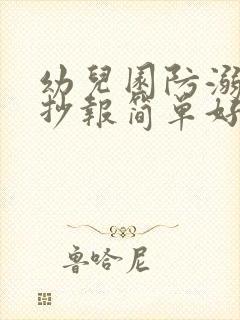 幼兒園防溺
抄報简單好
魯哈尼